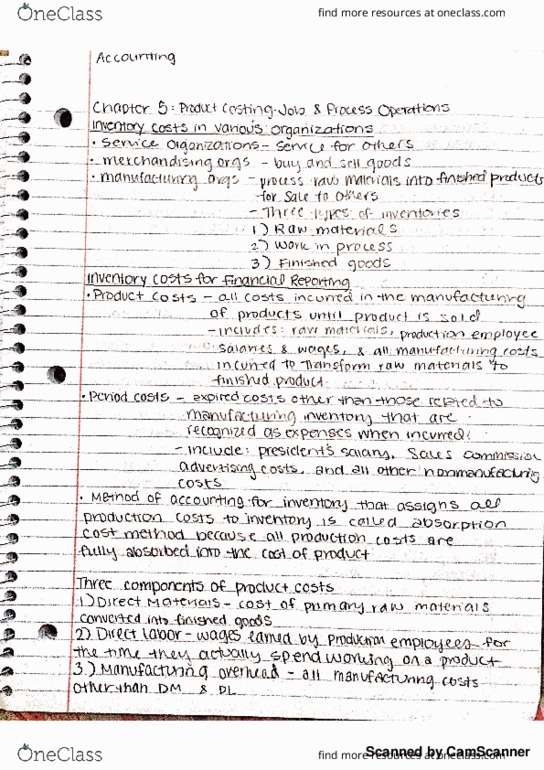 OneClass
find more resources at oneclass.com
Accounting
Chapter 5: Product Costing-Job & Process Operations
Inventory costs in various organizations
• Service Organizations - service for others
• merchandising orgs - buy and sell goods
• manufacturing orgs - process raw materials into finished products
for sale to others
- Three types of inventories
1) Raw materials
2) Work in process
3) Finished goods
Inventory Costs for Financial Reporting
• Product costs - all costs incurred in the manufacturing
of products until product is sold
- includes: raw materials, production employee
salaries & wages, & all manufacturing costs
incurred to transform raw materials to
finished product
• Period costs - expired costs other than those related to
manufacturing inventory that are
recognized as expenses when incurred
- Include: president's salary, sales commission
advertising costs, and all other nonmanufacturing
costs
• Method of accounting for inventory that assigns all
production costs to inventory is called absorption
cost method because all production costs are
fully absorbed into the cost of product
Three components of product costs
1) Direct Materials - cost of primary raw materials
converted into finished goods
2) Direct labor - wages earned by production employees for
the time they actually spend working on a product
3) Manufacturing overhead - all manufacturing costs
other than DM & DL
OneClass
find more resources at oneclass.com
Scanned by CamScanner